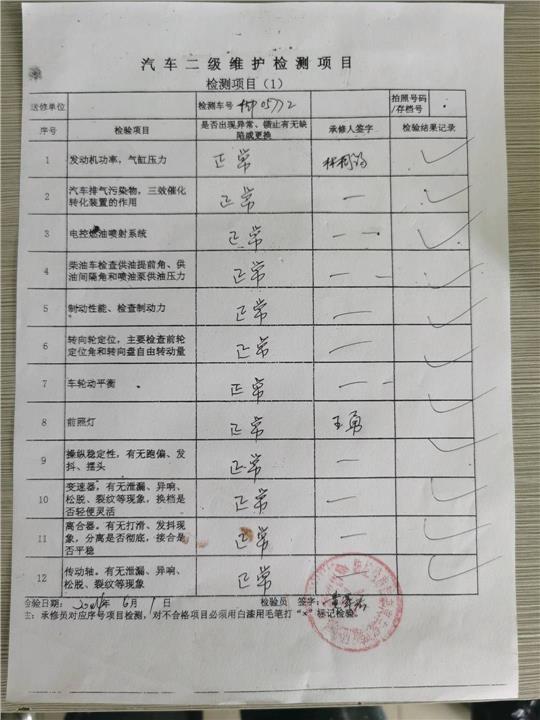 汽车二级维护检测项目
检测项目（1）
送修单位 检测车号 05772 拍照号码/存档号
序号 检验项目 是否出现异常、锁止有无缺陷或更换 承修人签字 检验结果记录
1 发动机功率，气缸压力 正常 ✓
2 汽车排气污染物，三效催化转化装置的作用 正常 — ✓
3 电控燃油喷射系统 正常 — — ✓
4 柴油车检查供油提前角、供油间隔角和喷油泵供油压力 正常 — — ✓
5 制动性能、检查制动力 正常 — ✓
6 转向轮定位，主要检查前轮定位角和转向盘自由转动量 正常 — ✓
7 车轮动平衡 正常 — — ✓
8 前照灯 正常 王勇 ✓
9 操纵稳定性，有无跑偏、发抖、摆头 正常 — ✓
10 变速器，有无泄漏、异响、松脱、裂纹等现象，换档是否轻便灵活 正常 — ✓
11 离合器。有无打滑、发抖现象，分离是否彻底，接合是否平稳 正常 — ✓
12 传动轴。有无泄漏、异响、松脱、裂纹等现象 正常 — ✓
检验日期： 年 6 月 1 日 检验员 签字：
注：承修员对应序号项目检测，对不合格项目必须用白漆用毛笔打“×”标记检验。